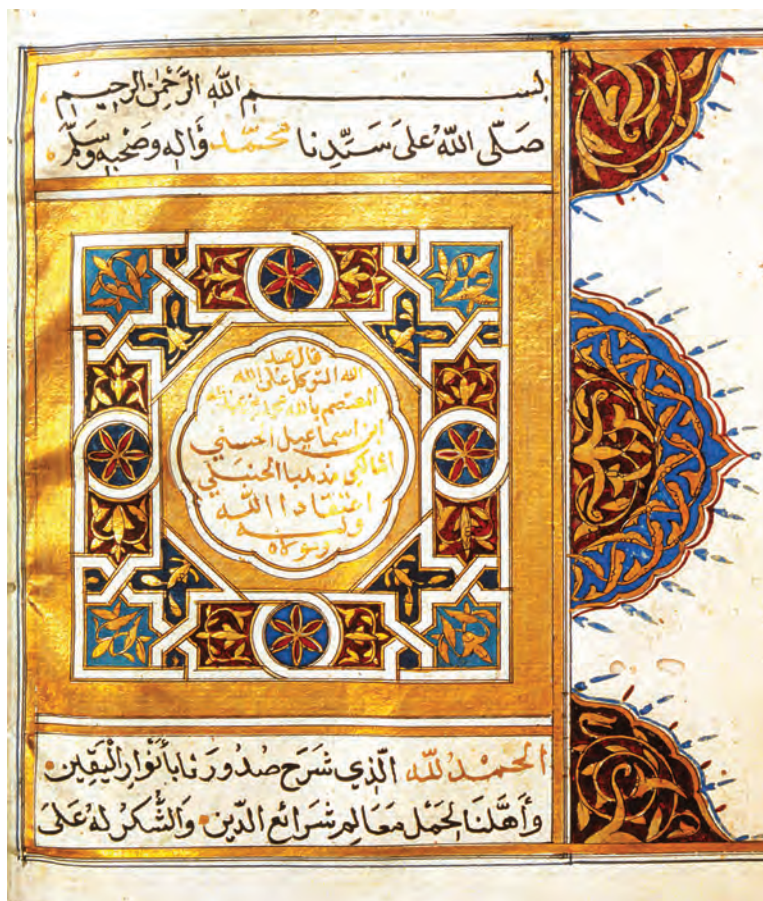 بسم الله الرَّحْمٰنِ الرحيم
صَلَّى اللهُ عَلَى سَيِّدِنا محمّد وَآلِه وَصَحْبِه وَسَلَّم
قال عبد
الله المتوكل على الله
المعتصم بالله
ابن اسماعيل الحسني
المالكي مذهبا الحنبلي
اعتقادا الله
وليه
الحمدُ لله الّذِي شَرَح صُدُورَنا بأنْوارِ الْيَقِين
وَأَهَّلَنَا لِحَمْل مَعَالِم شَرائع الدّين وَالشُّكرُ لَهُ عَلَى